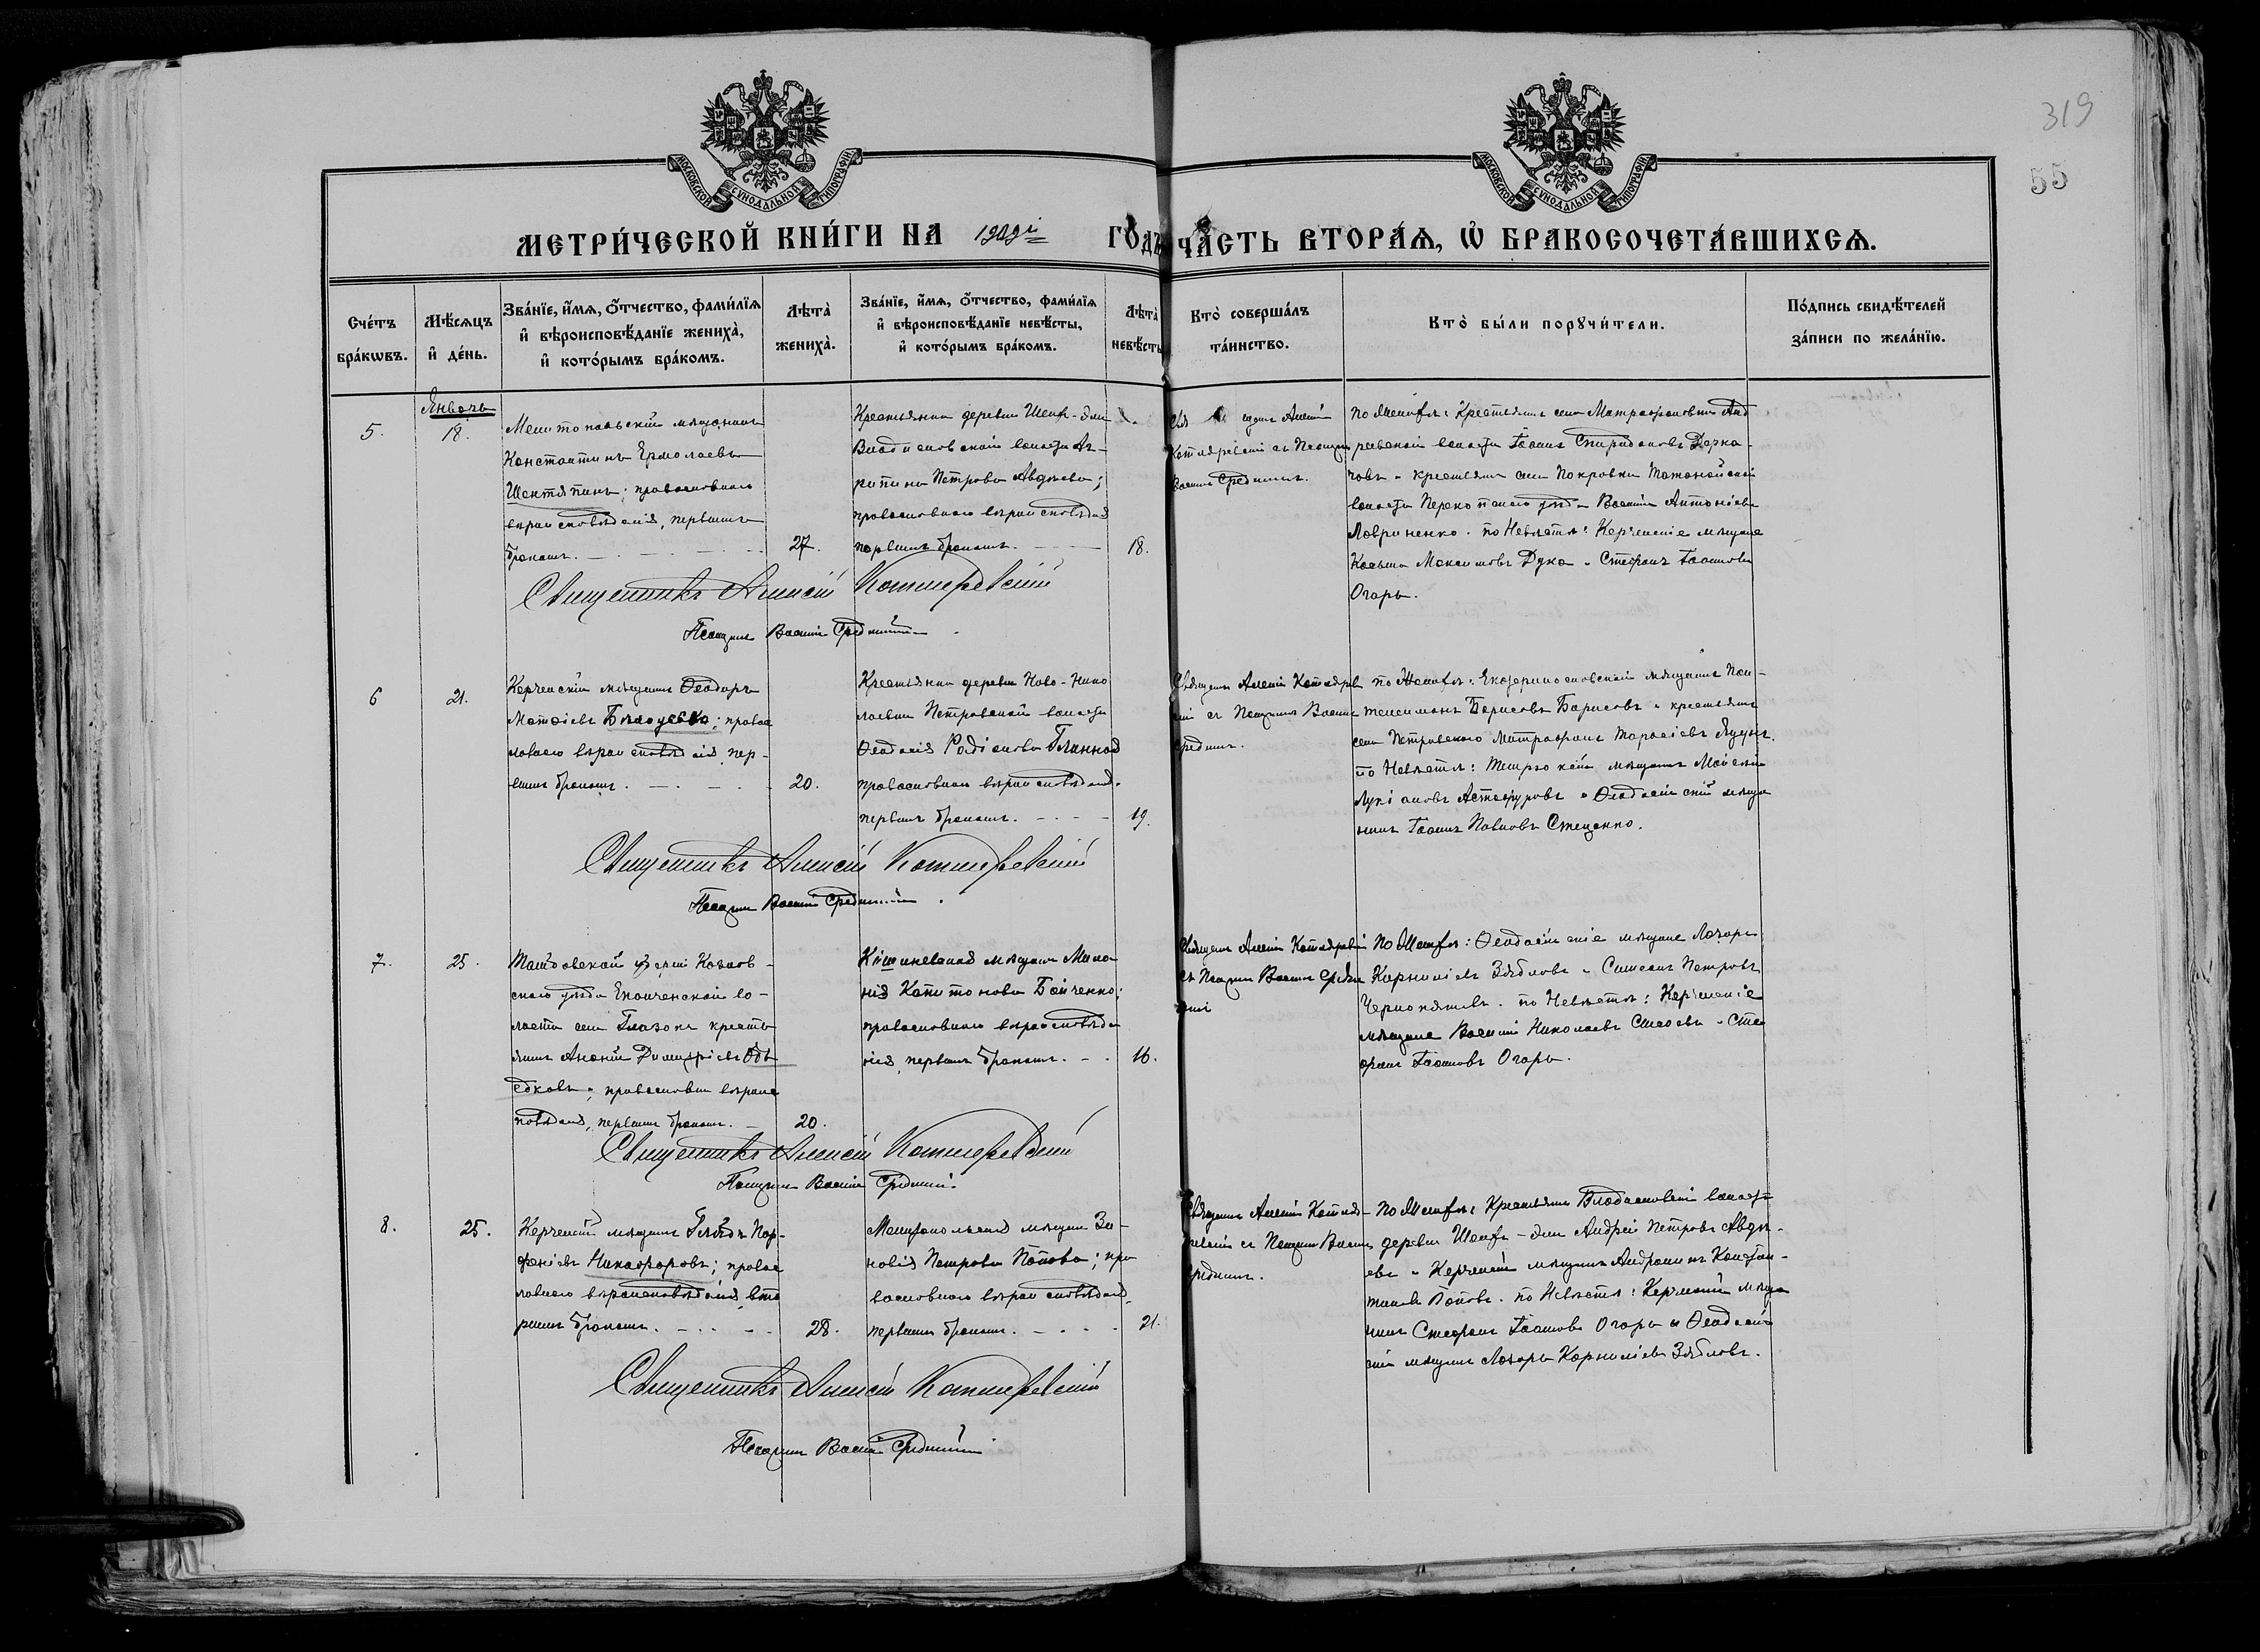 319
55
МОСКОВСКОЙ СУНОДАЛЬНОЙ ТИПОГРАФІИ
МОСКОВСКОЙ СУНОДАЛЬНОЙ ТИПОГРАФІИ
МЕТРИ́ЧЕСКОЙ КНИ́ГИ НА 1909й ГОДЪ
ЧА́СТЬ ВТОРА́Я, Ѡ БРАКОСОЧЕТА́ВШИХСЯ.
Сче́тъ бра́кѡвъ.
Мѣ́сяцъ и҆ де́нь.
Зва́нїе, и҆́мя, ѻ҆́тчество, фами́лїя
и҆ вѣроисповѣ́данїе жениха̀,
и҆ кото́рымъ бра́комъ.
Лѣта̀ жениха̀.
Зва́нїе, и҆́мя, ѻ҆́тчество, фами́лїя
и҆ вѣроисповѣ́данїе невѣ́сты,
и҆ кото́рымъ бра́комъ.
Лѣта̀ невѣ́сты
Кто̀ соверша́лъ та́инство.
Кто̀ бы́ли порꙋчи́тели.
По́дпись свидѣ́телей за́писи по жела́нїю.
Январь
5.
18.
Мелитопольскій мѣщанинъ
Константинъ Ермолаевъ
Шентяпинъ; православнаго
вѣроисповѣданія, первымъ
бракомъ.
27.
Крестьянка деревни Шейх-Эли
Владиславской волости Аг-
рипина Петрова Авдѣева;
православнаго вѣроисповѣданія
первымъ бракомъ.
18.
Алексій
Котляревскій съ Псаломщ
Василіемъ Среднимъ.
По Женихѣ: Крестьянинъ села Митрофановки Анд
реевской волости Іоаннъ Спиридоновъ Дерка-
човъ и крестьянинъ села Покровки
волости Перекопскаго уѣзда Василій Антоніевъ
Лавриненко. по Невѣстѣ: Керченскіе мѣщане
Козьма Максимовъ Дука и Стефанъ Іоанновъ
Огарь.
Священникъ Алексій Котляревскій
Псаломщикъ Василій Средній
6
21.
Керченскій мѣщанинъ Ѳеодоръ
Матѳіевъ Бѣлоусько; правос
лавнаго вѣроисповѣданія, пер-
вымъ бракомъ.
20.
Крестьянка деревни Ново-Нико
лаевки Петровской волости
Ѳеодосія Родіонова Глинная
православнаго вѣроисповѣданія.
первымъ бракомъ.
19.
Священ Алексій Котлярев
скій съ Псаломщ Василіемъ
Среднимъ.
по Женихѣ: Екатеринославскій мѣщанинъ Пан-
телеимонъ Борисовъ Борисовъ и крестьянинъ
села Петровскаго Митрофанъ Тарасіевъ
по Невѣстѣ: Темрюкскій мѣщанинъ Моисей
Лукіановъ Астафуровъ и Ѳеодосійскій мѣща
нинъ Іоаннъ Павловъ Стеценко.
Священникъ Алексій Котляревскій
Псаломщикъ Василій Средній.
7.
25.
Тамбовской губерніи Козлов-
скаго уѣзда Епанченской во-
лости села Глазокъ кресть
янинъ Ананій Димитріевъ Объ
едковъ; православнаго вѣроис
повѣданія, первымъ бракомъ.
20.
Кишиневская мѣщанка Мела
нія Капитонова Бойченко;
православнаго вѣроисповѣда
нія, первымъ бракомъ.
16.
Священ Алексій Котляревскій
съ Псаломщ Василіемъ Сред
нимъ
По Женихѣ: Ѳеодосійскіе мѣщане Лазарь
Корниліевъ Зябловъ и Симеонъ Петровъ
по Невѣстѣ: Керченскіе
мѣщане Василій Николаевъ и Сте
фанъ Іоанновъ Огарь.
Священникъ Алексій Котляревскій
Псаломщикъ Василій Средній.
8.
25.
Керченскій мѣщанинъ Глѣбъ Пар-
ѳеніевъ Никифоровъ; правос
лавнаго вѣроисповѣданія, вто
рымъ бракомъ.
28.
Мелитопольская мѣщанка Зи-
новія Петрова Попова; пра
вославнаго вѣроисповѣданія,
первымъ бракомъ.
21.
Священ Алексій Котля-
ревскій съ Псаломщ Василіемъ
Среднимъ.
По Женихѣ: Крестьянинъ Владиславской волости
деревни Шейх-Эли Андрей Петровъ Авдѣ-
евъ и Керченскій мѣщанинъ Андроникъ Констан-
тиновъ Поповъ. по Невѣстѣ: Керченскій мѣща
нинъ Стефанъ Іоанновъ Огарь и Ѳеодосій
скій мѣщанинъ Лазарь Корниліевъ Зябловъ.
Священникъ Алексій Котляревскій
Псаломщикъ Василій Средній